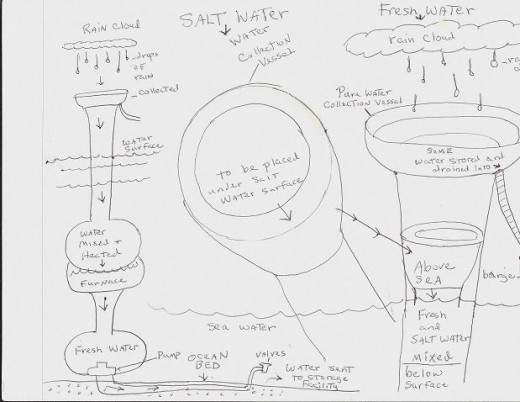 Rain Cloud
drops
of
rain
collected
Water
Surface
Water
Mixed +
Heated
Furnace
Fresh Water
Pump
Ocean
Bed
Valves
Water sent
to storage
facility
Salt Water
Water
Collection
Vessel
to be placed
under salt
water surface
Sea water
Fresh Water
rain cloud
Pure Water
Collection Vessel
some
water stored and
drained into
Above
Sea
barge
Fresh
and
Salt Water
Mixed
below
Surface